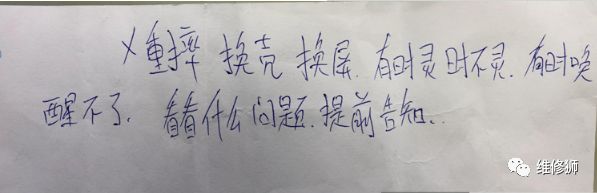 X重摔 换壳 换屏.有时灵时不灵.有时唤
醒不了. 看看什么问题.提前告知..
维修狮